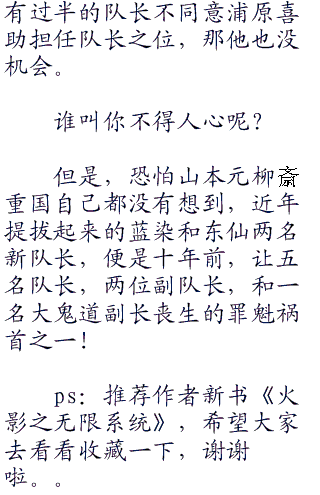 有过半的队长不同意浦原喜
助担任队长之位，那他也没
机会。
谁叫你不得人心呢？
但是，恐怕山本元柳斎
重国自己都没有想到，近年
提拔起来的蓝染和东仙两名
新队长，便是十年前，让五
名队长，两位副队长，和一
名大鬼道副长丧生的罪魁祸
首之一！
ps：推荐作者新书《火
影之无限系统》，希望大家
去看看收藏一下，谢谢
啦。。